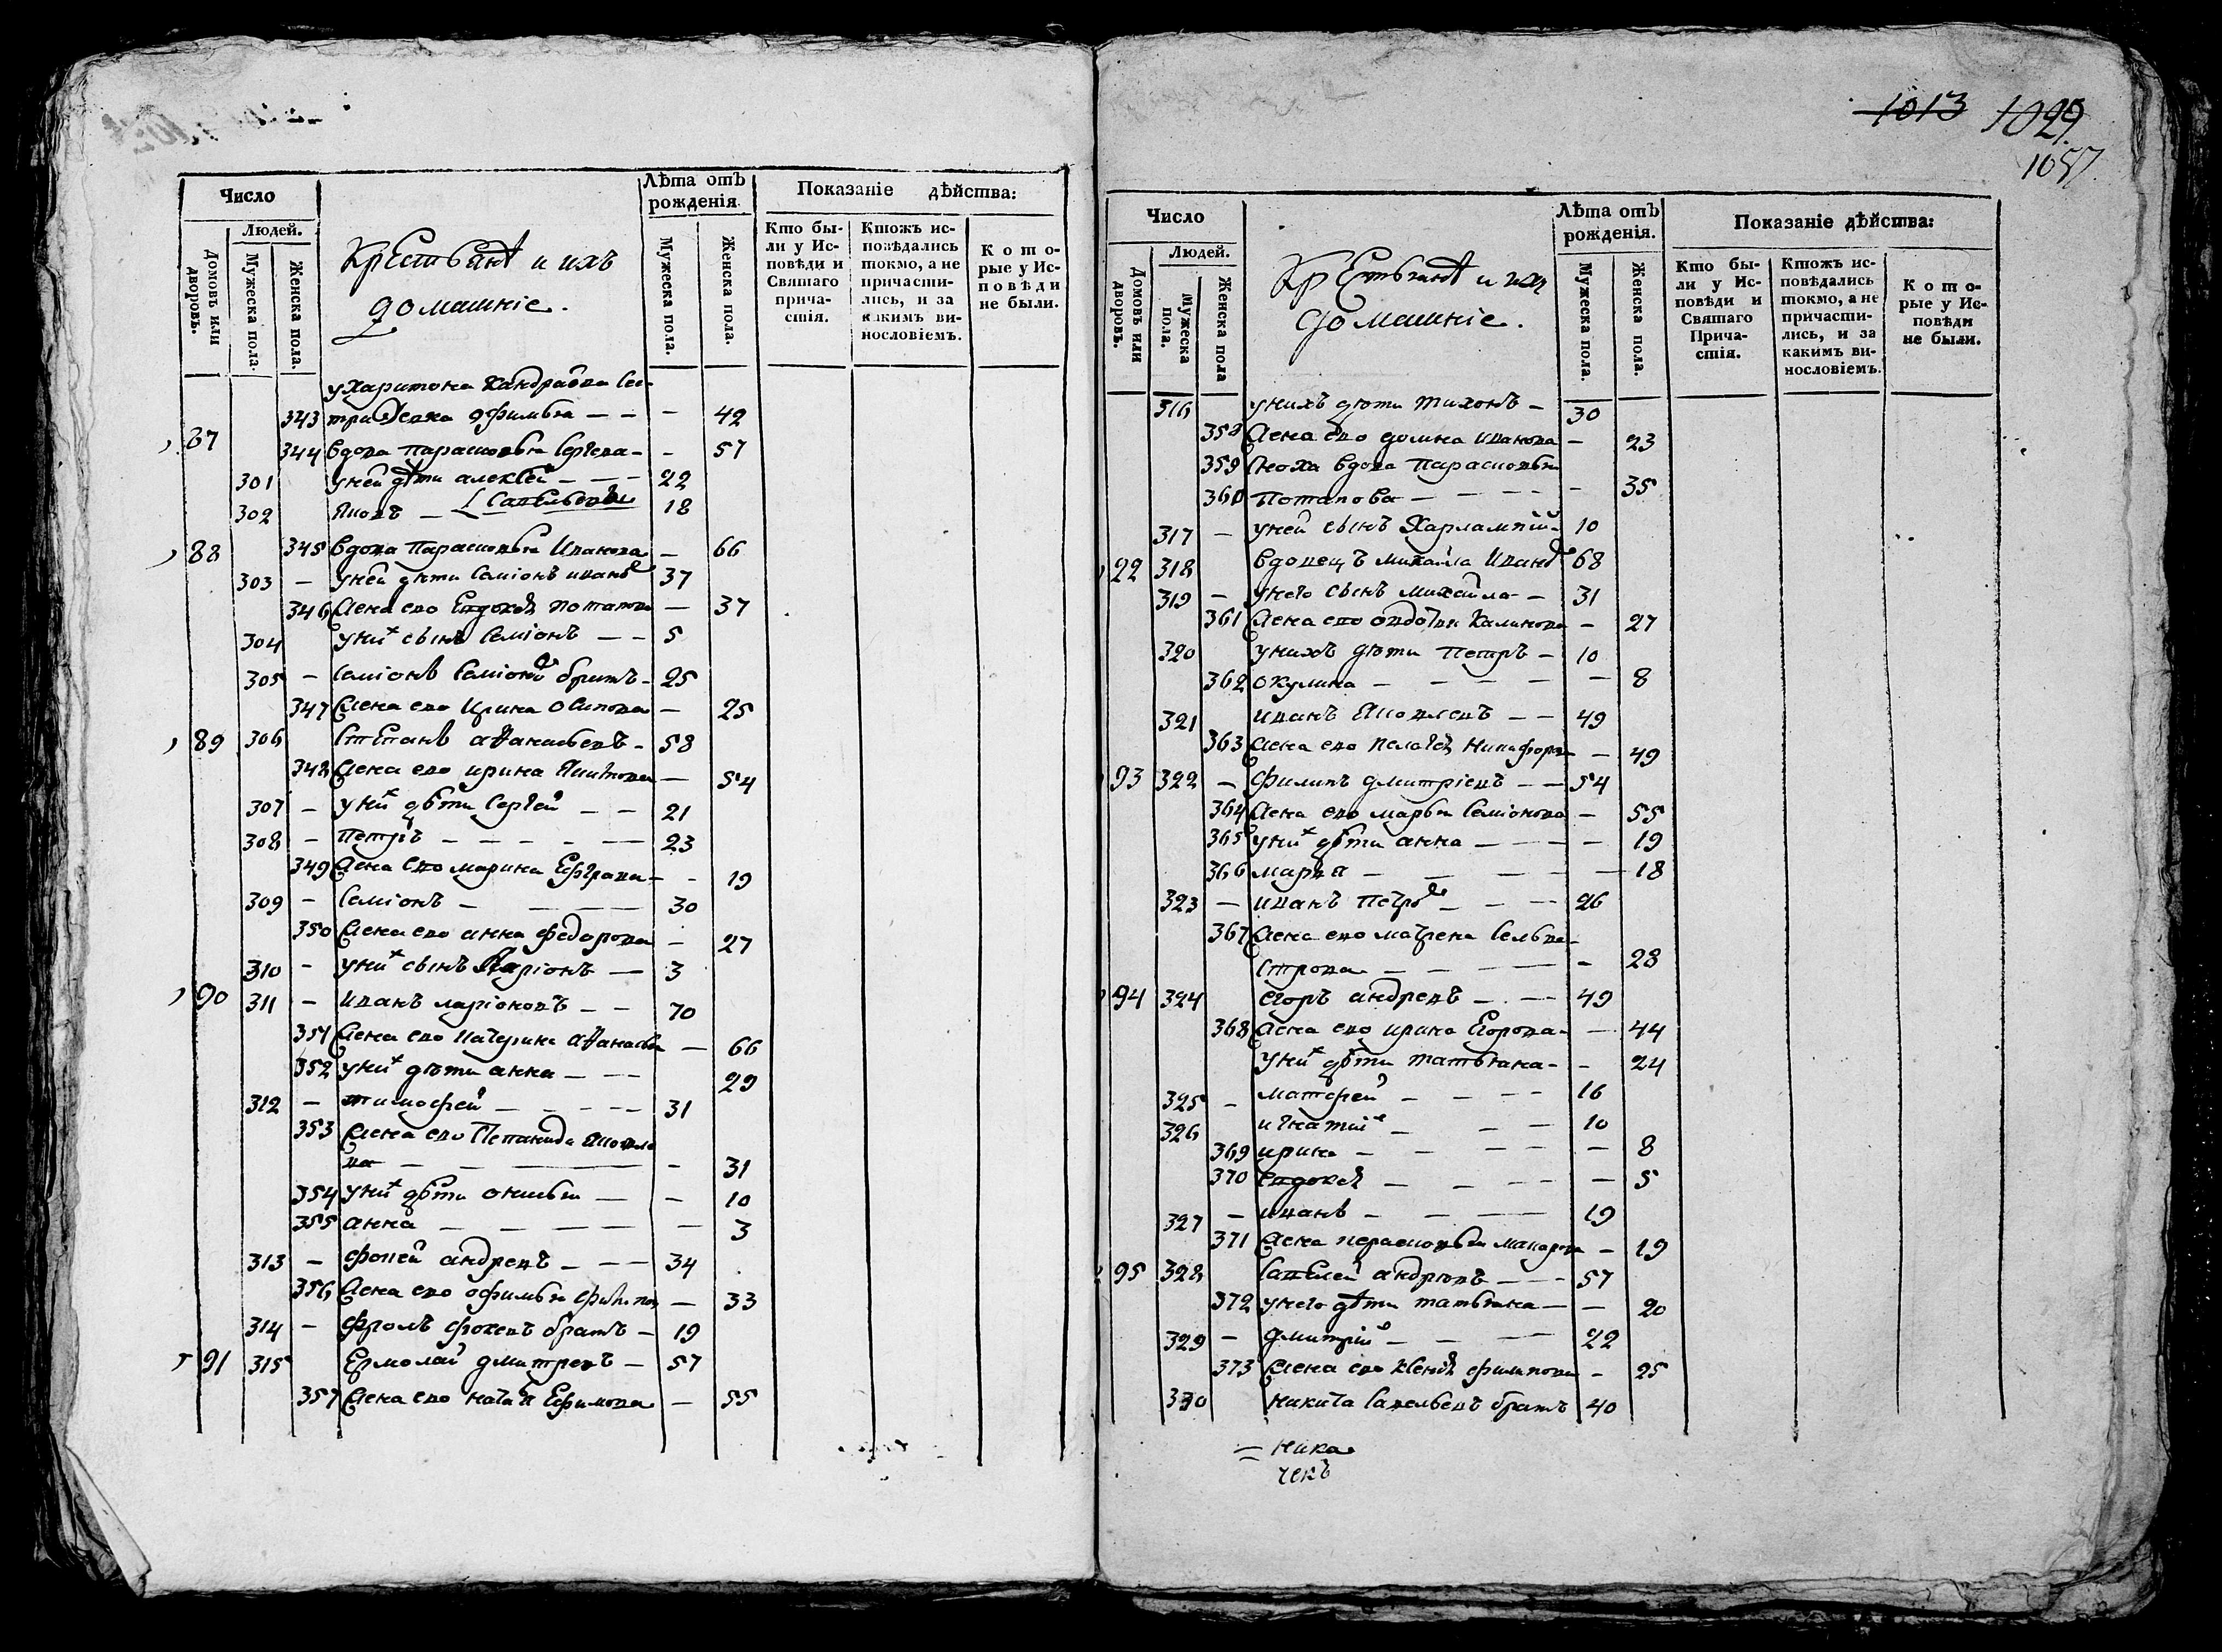 1013 1029
1057
Число
Людей.
Домовъ или дворовъ.
Мужеска пола.
Женска пола.
Крестьянѣ и ихъ
домашніе.
Лѣта отъ рожденія.
Мужеска пола.
Женска пола.
Показаніе дѣйства:
Кто были у Исповѣди и Святаго причастія.
Ктожъ исповѣдались токмо, а не причастились, и за какимъ винословіемъ.
Которые у Исповѣди не были.
у Харитона Кандратва сес
343 тра девка афимья — — — 42
87 344 вдова парасковья Сергева — — 57
301 у ней дѣти алексѣй — — — 22
302 Яковъ — Савельевы 18
88 345 вдова парасковья Иванова — 66
303 — у ней дѣти Семіонъ иванов 37
346 Жена ево Евдокѣя потапова — 37
304 у них сынъ Семіонъ — — 5
305 — Семіонъ Семіонов братъ — 25
347 Жена ево Ирина Осипова — 25
89 306 Степанъ аѳанасьевъ — 58
348 Жена ево ирина Никитова — 54
307 — у них дѣти Сергей — — 21
308 — Петръ — — — — — 23
349 Жена ево марина Ефграва — — 19
309 — Семіонъ — — — — 30
350 Жена ево анна федорова — 27
310 — у них сынъ Ларіонъ — 3
90 311 — Иванъ ларіоновъ — — 70
351 Жена ево Катерина аѳанасьва — 66
352 у них дѣти анна — — — 29
312 — тимофей — — — — — 31
353 Жена ево Степанида Яковле
ва — — — — — 31
354 у них дѣти онисья — — 10
355 анна — — — — — 3
313 — фокей андревъ — — — 34
356 Жена ево офимья филипов — 33
314 — фролъ фокевъ братъ — 19
91 315 Ермолай дмитревъ — 57
357 Жена ево наталя Ефимова — 55
Число
Людей.
Домовъ или дворовъ.
Мужеска пола.
Женска пола
Крестьянѣ и их
домашніе.
Лѣта отъ рожденія.
Мужеска пола.
Женска пола.
Показаніе дѣйства:
Кто были у Исповѣди и Святаго Причастія.
Ктожъ исповѣдались токмо, а не причастились, и за какимъ винословіемъ.
Которые у Исповѣди не были.
316 у нихъ дѣти тихонъ — 30
358 Жена ево домна иванова — 23
359 Сноха вдова парасковья
360 Потапова — — — — — 35
317 — у ней сынъ Харлампій — 10
92 318 вдовецъ михайла Иванов 68
319 — у него сынъ михайла — 31
361 Жена ево овдотья Калинова — 27
320 у нихъ дѣти Петръ — 10
362 окулина — — — — — 8
321 иванъ Яковлевъ — — 49
363 Жена ево пелагѣя Никифоров — 49
93 322 — филипъ дмитріевъ — — 54
364 Жена ево марья Семіонова — 55
365 у них дѣти анна — — — — 19
366 марѳа — — — — — 18
323 — иванъ Петров — — — 26
367 Жена ево матрена Сельве
строва — — — — — 28
94 324 егоръ андревъ — — — 49
368 Жена ево ирина Егорова — — 44
у них дѣти татьяна — — 24
325 — матфей — — — — 16
326 игнатій — — — 10
369 ирина — — — — — 8
370 евдокѣя — — — — 5
327 — иванъ — — — — 19
371 Жена парасковья макарова — 19
95 328 Савелей андрювъ — — — 57
372 у него дѣти татьяна — — 20
329 — дмитрій — — — 22
373 Жена ево ксенѣя филипова — 25
330 никита Савельевъ братъ 40
— ника